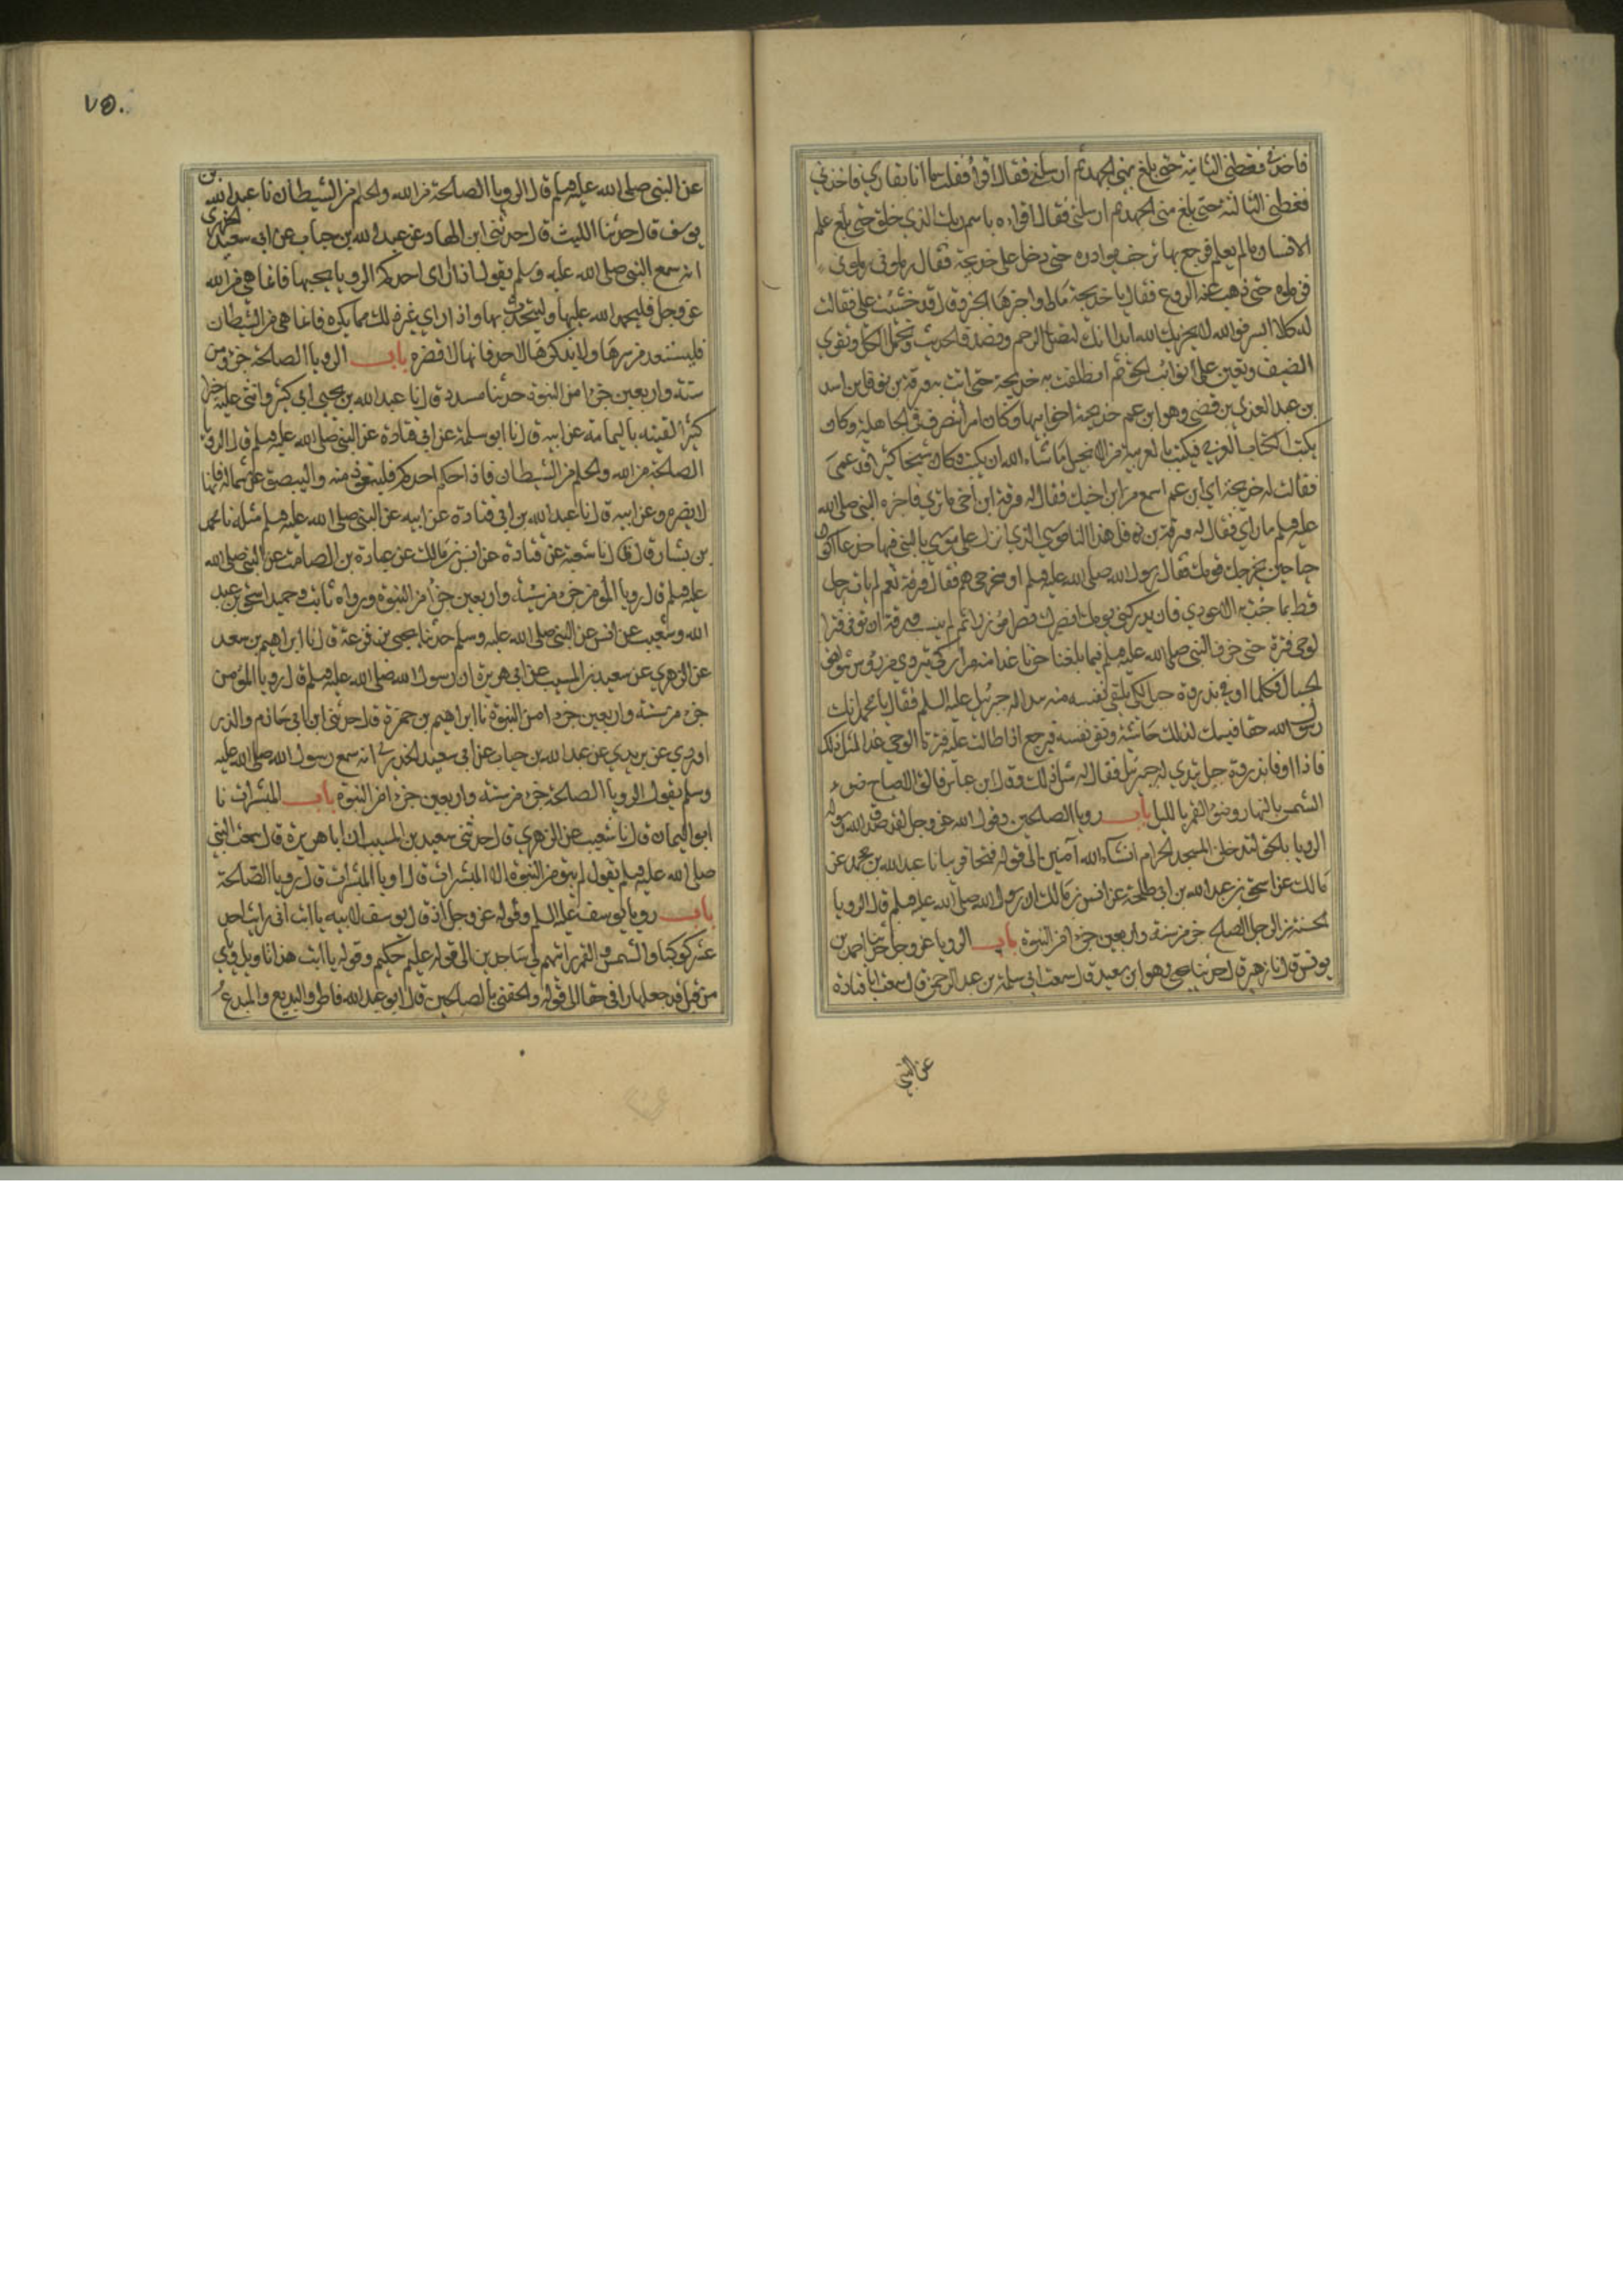 فاخذني فغطني الثانية حتى بلغ مني الجهد ثم ارسلني فقال اقرأ فقلت ما انا بقاري فاخذني
فغطني الثالثة حتى بلغ مني الجهد ثم ارسلني فقال اقراء باسم ربك الذي خلق حتى بلغ علم
الانسان مالم يعلم فرجع بها ترجف بوادره حتى دخل على خديجة فقال زملوني زملوني
فزملوه حتى ذهب عنه الروع فقال يا خديجة مالي واخبرها الخبر وقال قد خشيت علي فقالت
له كلا ابشر فوالله لا يخزيك الله ابدا انك لتصل الرحم وتصدق الحديث وتحمل الكل وتقري
الضيف وتعين على نوائب الحق ثم انطلقت به خديجة حتى اتت به ورقة بن نوفل بن اسد
بن عبد العزي بن قصي وهو ابن عم خديجة اخو ابيها وكان امرأ تنصر في الجاهلية وكان
يكتب الكتاب العربي فيكتب بالعربية من الانجيل ما شاء الله ان يكتب وكان شيخا كبيرا قد عمي
فقالت له خديجة اي ابن عم اسمع من ابن اخيك فقال له ورقة ابن اخي ما تري فاخبره النبي صلى الله
عليه وسلم ما راي فقال له ورقة بن هذا الناموس الذي انزل على موسي يا ليتني فيها جذعا اكون
حيا حين يخرجك قومك فقال رسول الله صلى الله عليه وسلم او مخرجي هم فقال ورقة نعم لم يات رجل
قط بما جئت به الا عودي وان يدركني يومك انصرك نصرا مؤزرا ثم لم ينشب ورقة ان توفي وفتر ا
لوحي فترة حتى حزن النبي صلى الله عليه وسلم فيما بلغنا حزنا غدا منه مرارا كي يتردي من رؤس شواهق
الجبال فكلما اوفي بذروة جبل لكي يلقي نفسه منه تبدا له جبرئيل عليه السلم فقال يا محمد انك
رسول الله حقا فيسكن لذلك جاشه وتقر نفسه فيرجع اذا طالت عليه فترة الوحي غدا لمثل ذلك
فاذا اوفا بذروة جبل تبدي له جبرئيل فقال له مثل ذلك وقال ابن عباس فالق الاصباح ضوء
الشمس بالنهار وضؤ القمر بالليل باب رويا الصلحين وقول الله عز وجل لقد صدق الله رسوله
الرويا بالحق لتدخلن المسجد الحرام ان شاء الله آمنين الى قوله فتحا قريبا نا عبد الله بن محمد عن
مالك عن اسحق بن عبد الله بن ابي طلحة عن انس بن مالك ان رسول الله صلى الله عليه وسلم قال الرويا
الحسنة من الرجل الصلح جزء من ستة واربعين جزءا من النبوة باب الرويا عز وجل حدثنا احمد بن
يونس قال نا زهير قال حدثنا يحيى وهو ابن سعيد قال سمعت ابي سلمة بن عبد الرحمن قال سمعت ابا قتادة
عن النبي
٧٥٠
عن النبي صلى الله عليه وسلم قال الرويا الصالحة من الله والحلم من الشيطان نا عبد الله بن
يوسف قال حدثنا الليث قال حدثني ابن الهاد عن عبد الله بن خباب عن ابي سعيد الخدري
انه سمع النبي صلى الله عليه وسلم يقول اذا راي احدكم الرويا يحبها فانما هي من الله
عز وجل فليحمد الله عليها وليتحدث بها واذا راي غير ذلك مما يكره فانما هي من الشيطان
فليستعذ من شرها ولا يذكرها لاحد فانها لا تضره باب الرويا الصلحة جزؤ من
ستة واربعين جزءا من النبوة حدثنا مسدد قال نا عبد الله بن يحيى ابي كثير واثنى عليه خيرا
كثيرا لقيته باليمامة عن ابيه قال نا ابو سلمة عن ابي قتادة عن النبي صلى الله عليه وسلم قال الرويا
الصلحة من الله والحلم من الشيطان فاذا حلم احدكم فليتعوذ منه واليبصق عن شماله فانها
لا يضره وعن ابيه قال نا عبد الله بن ابي قتادة عن ابيه عن النبي صلى الله عليه وسلم مثله نا محمد
بن بشار قال نا شعبة عن قتادة عن انس بن مالك عن عبادة بن الصامت عن النبي صلى الله
عليه وسلم قال رويا المؤمن جزء من ستة واربعين جزؤا من النبوة ورواه ثابت وحميد اسحق بن عبد
الله وشعيب عن انس عن النبي صلى الله عليه وسلم حدثنا يحيى بن قزعة قال نا ابراهيم بن سعد
عن الزهري عن سعيد بن المسيب عن ابي هريرة ان رسول الله صلى الله عليه وسلم قال رويا المؤمن
جزء من ستة واربعين جزءا من النبوة نا ابراهيم بن حمزة قال حدثني ابن ابي حازم والدر
اوردي عن يزيد عن عبد الله بن خباب عن ابي سعيد الخدري انه سمع رسول الله صلى الله عليه
وسلم يقول الرويا الصلحة جزء من ستة واربعين جزءا من النبوة باب المبشرات نا
ابو اليمان قال نا شعيب عن الزهري قال حدثني سعيد بن المسيب ان ابا هريرة قال سمعت النبي
صلى الله عليه وسلم يقول لم يبق من النبوة الا المبشرات قالوا ويا المبشرات قال رويا الصالحة
باب رويا يوسف عليه السلم وقوله عز وجل اذ قال يوسف لابيه يا ابت اني رايت احد
عشر كوكبا والشمس والقمر رايتهم لي ساجدين الى قوله عليم حكيم وقوله يا ابت هذا تاويل روياي
من قبل قد جعلها ربي حقا الى قوله والحقني بالصلحين قال ابو عبد الله فاطر والبديع والمبدع